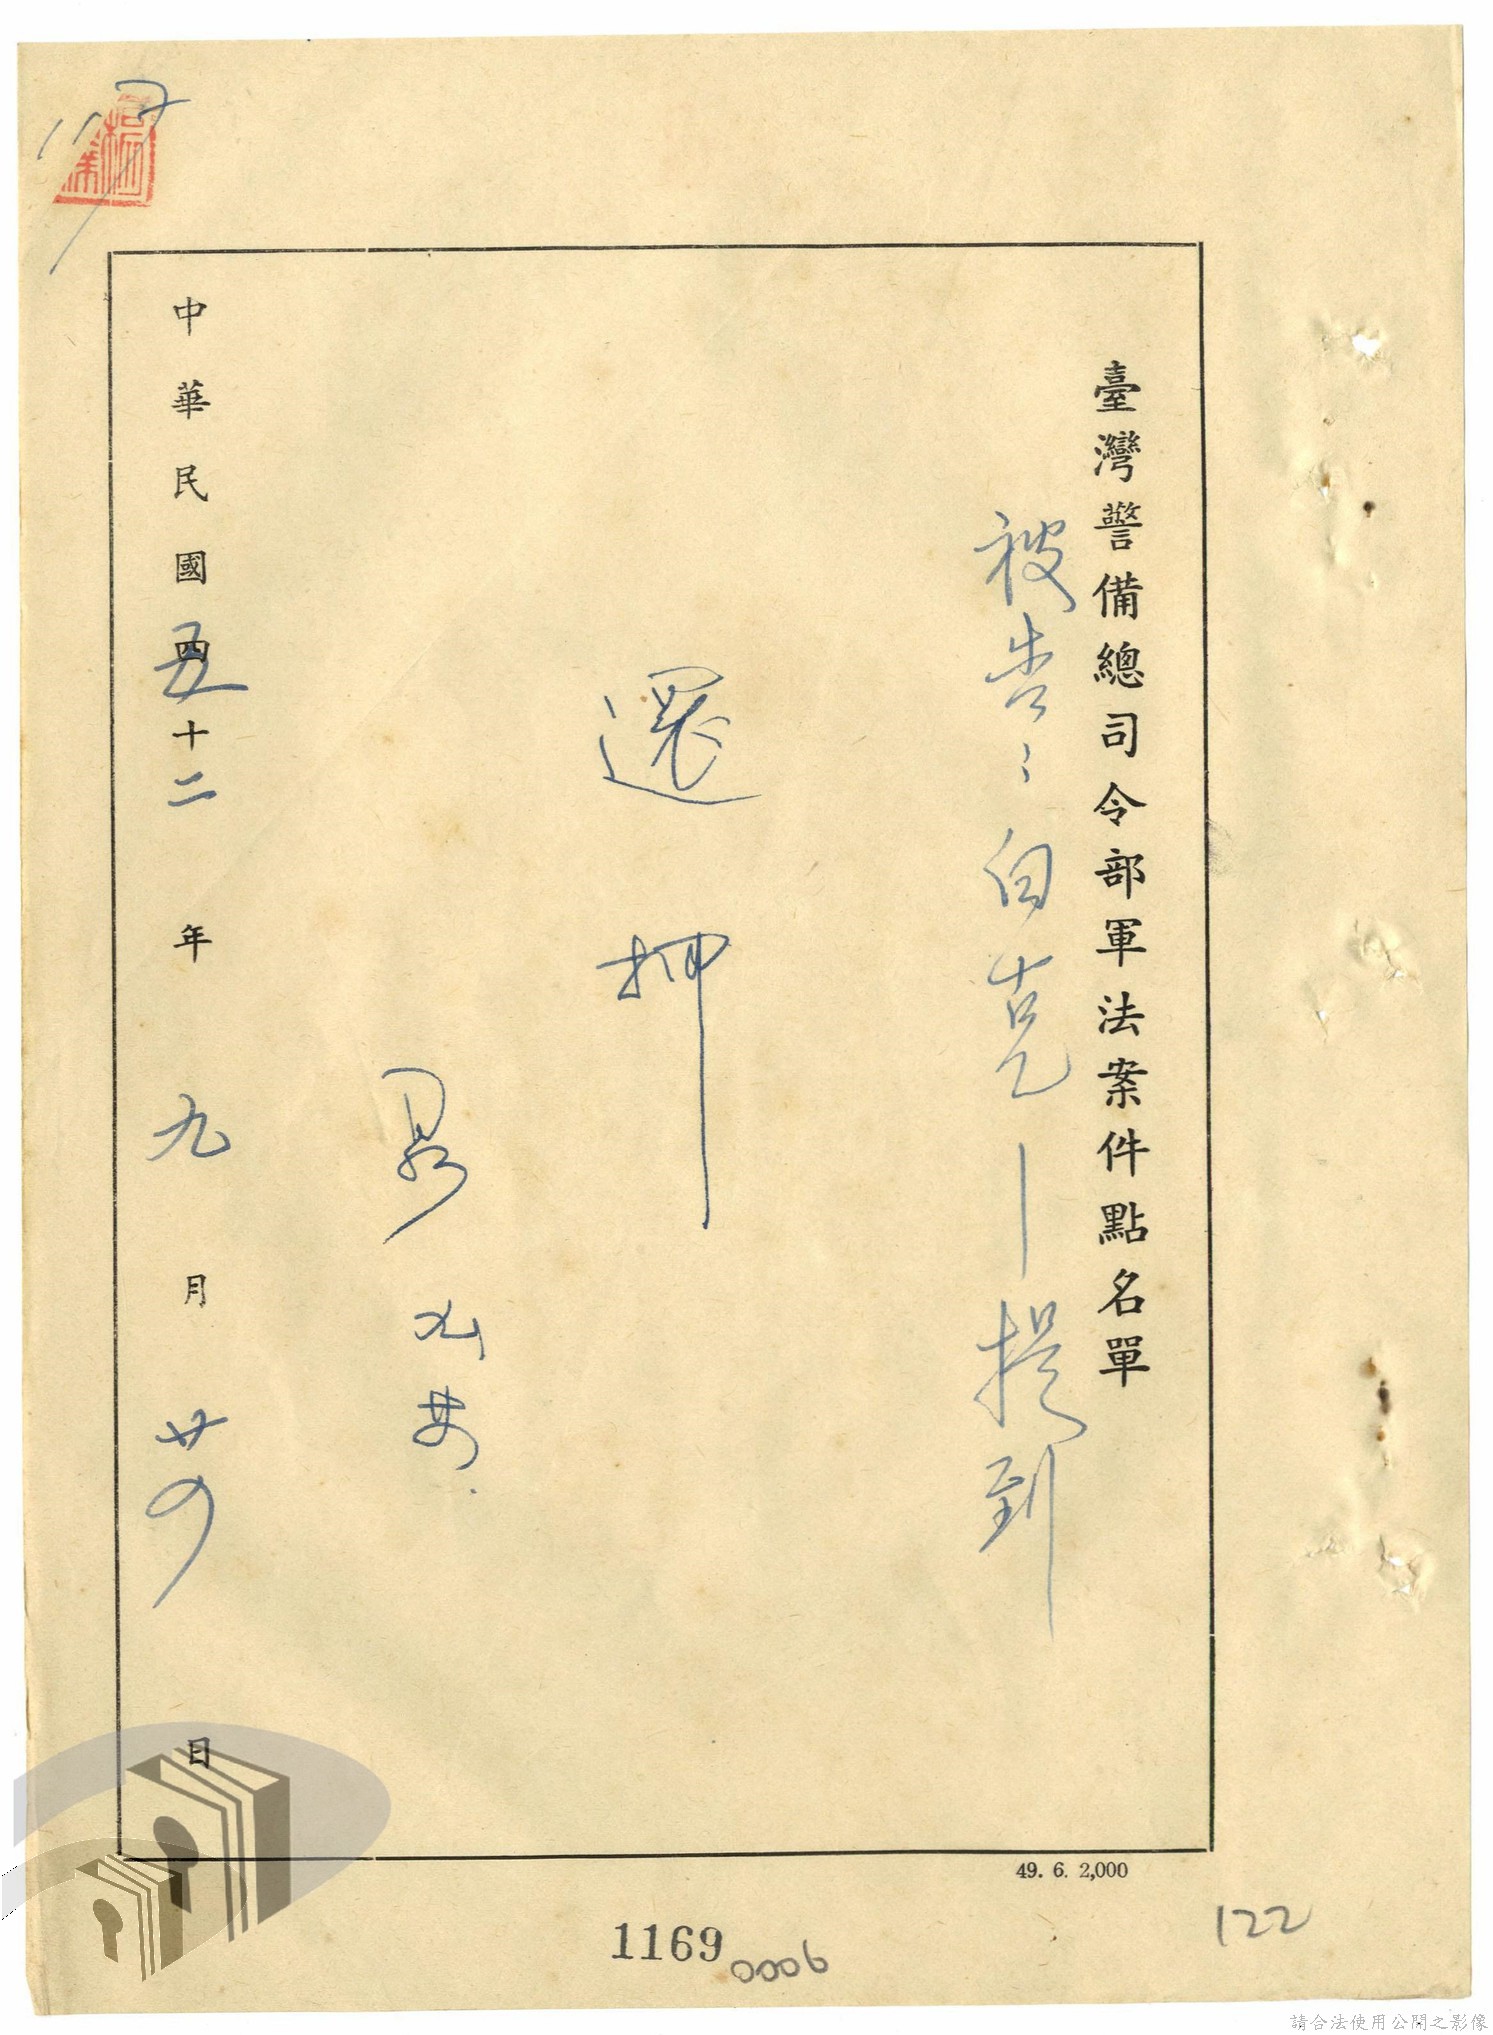 臺灣警備總司令部軍法案件點名單
被告：白克—提到
還押
九廿四
中華民國四五十二年九月廿四日
49. 6. 2,000
1169
0006
122
請合法使用公開之影像